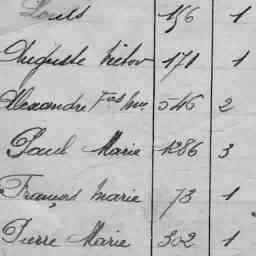 Louis 156 1
Auguste Victor 171 1
Alexandre Fois 546 2
Paul Marie 1286 3
François Marie 73 1
Pierre Marie 302 1